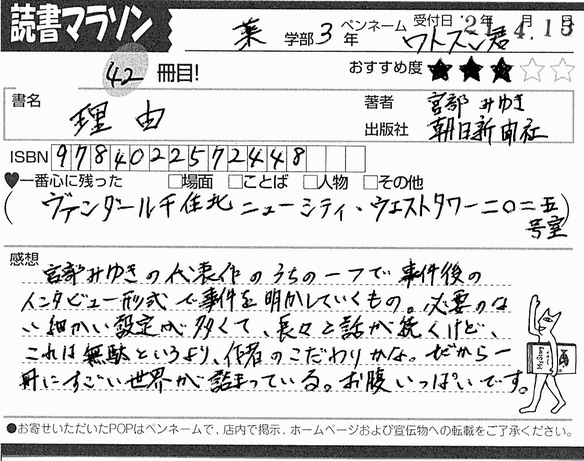 読書マラソン
薬 学部 3 年 ペンネーム ワトスン君 受付日 '21年 4月 15日
42 冊目! おすすめ度 ★★★☆☆
書名 理由
著者 宮部みゆき
出版社 朝日新聞社
ISBN 9784022572448
♥一番心に残った □場面 □ことば □人物 □その他
(ヴァンダール千住北ニューシティ・ウエストタワー二〇二五号室)
感想
宮部みゆきの代表作のうちの一つで事件後の
インタビュー形式で事件を明かしていくもの。必要のな
い細かい設定が多くて、長々と話が続くけど、
これは無駄というより、作者のこだわりかな。だから一
冊にすごい世界が詰まっている。お腹いっぱいです。
●お寄せいただいたPOPはペンネームで、店内で掲示、ホームページおよび宣伝物への転載をご了承ください。